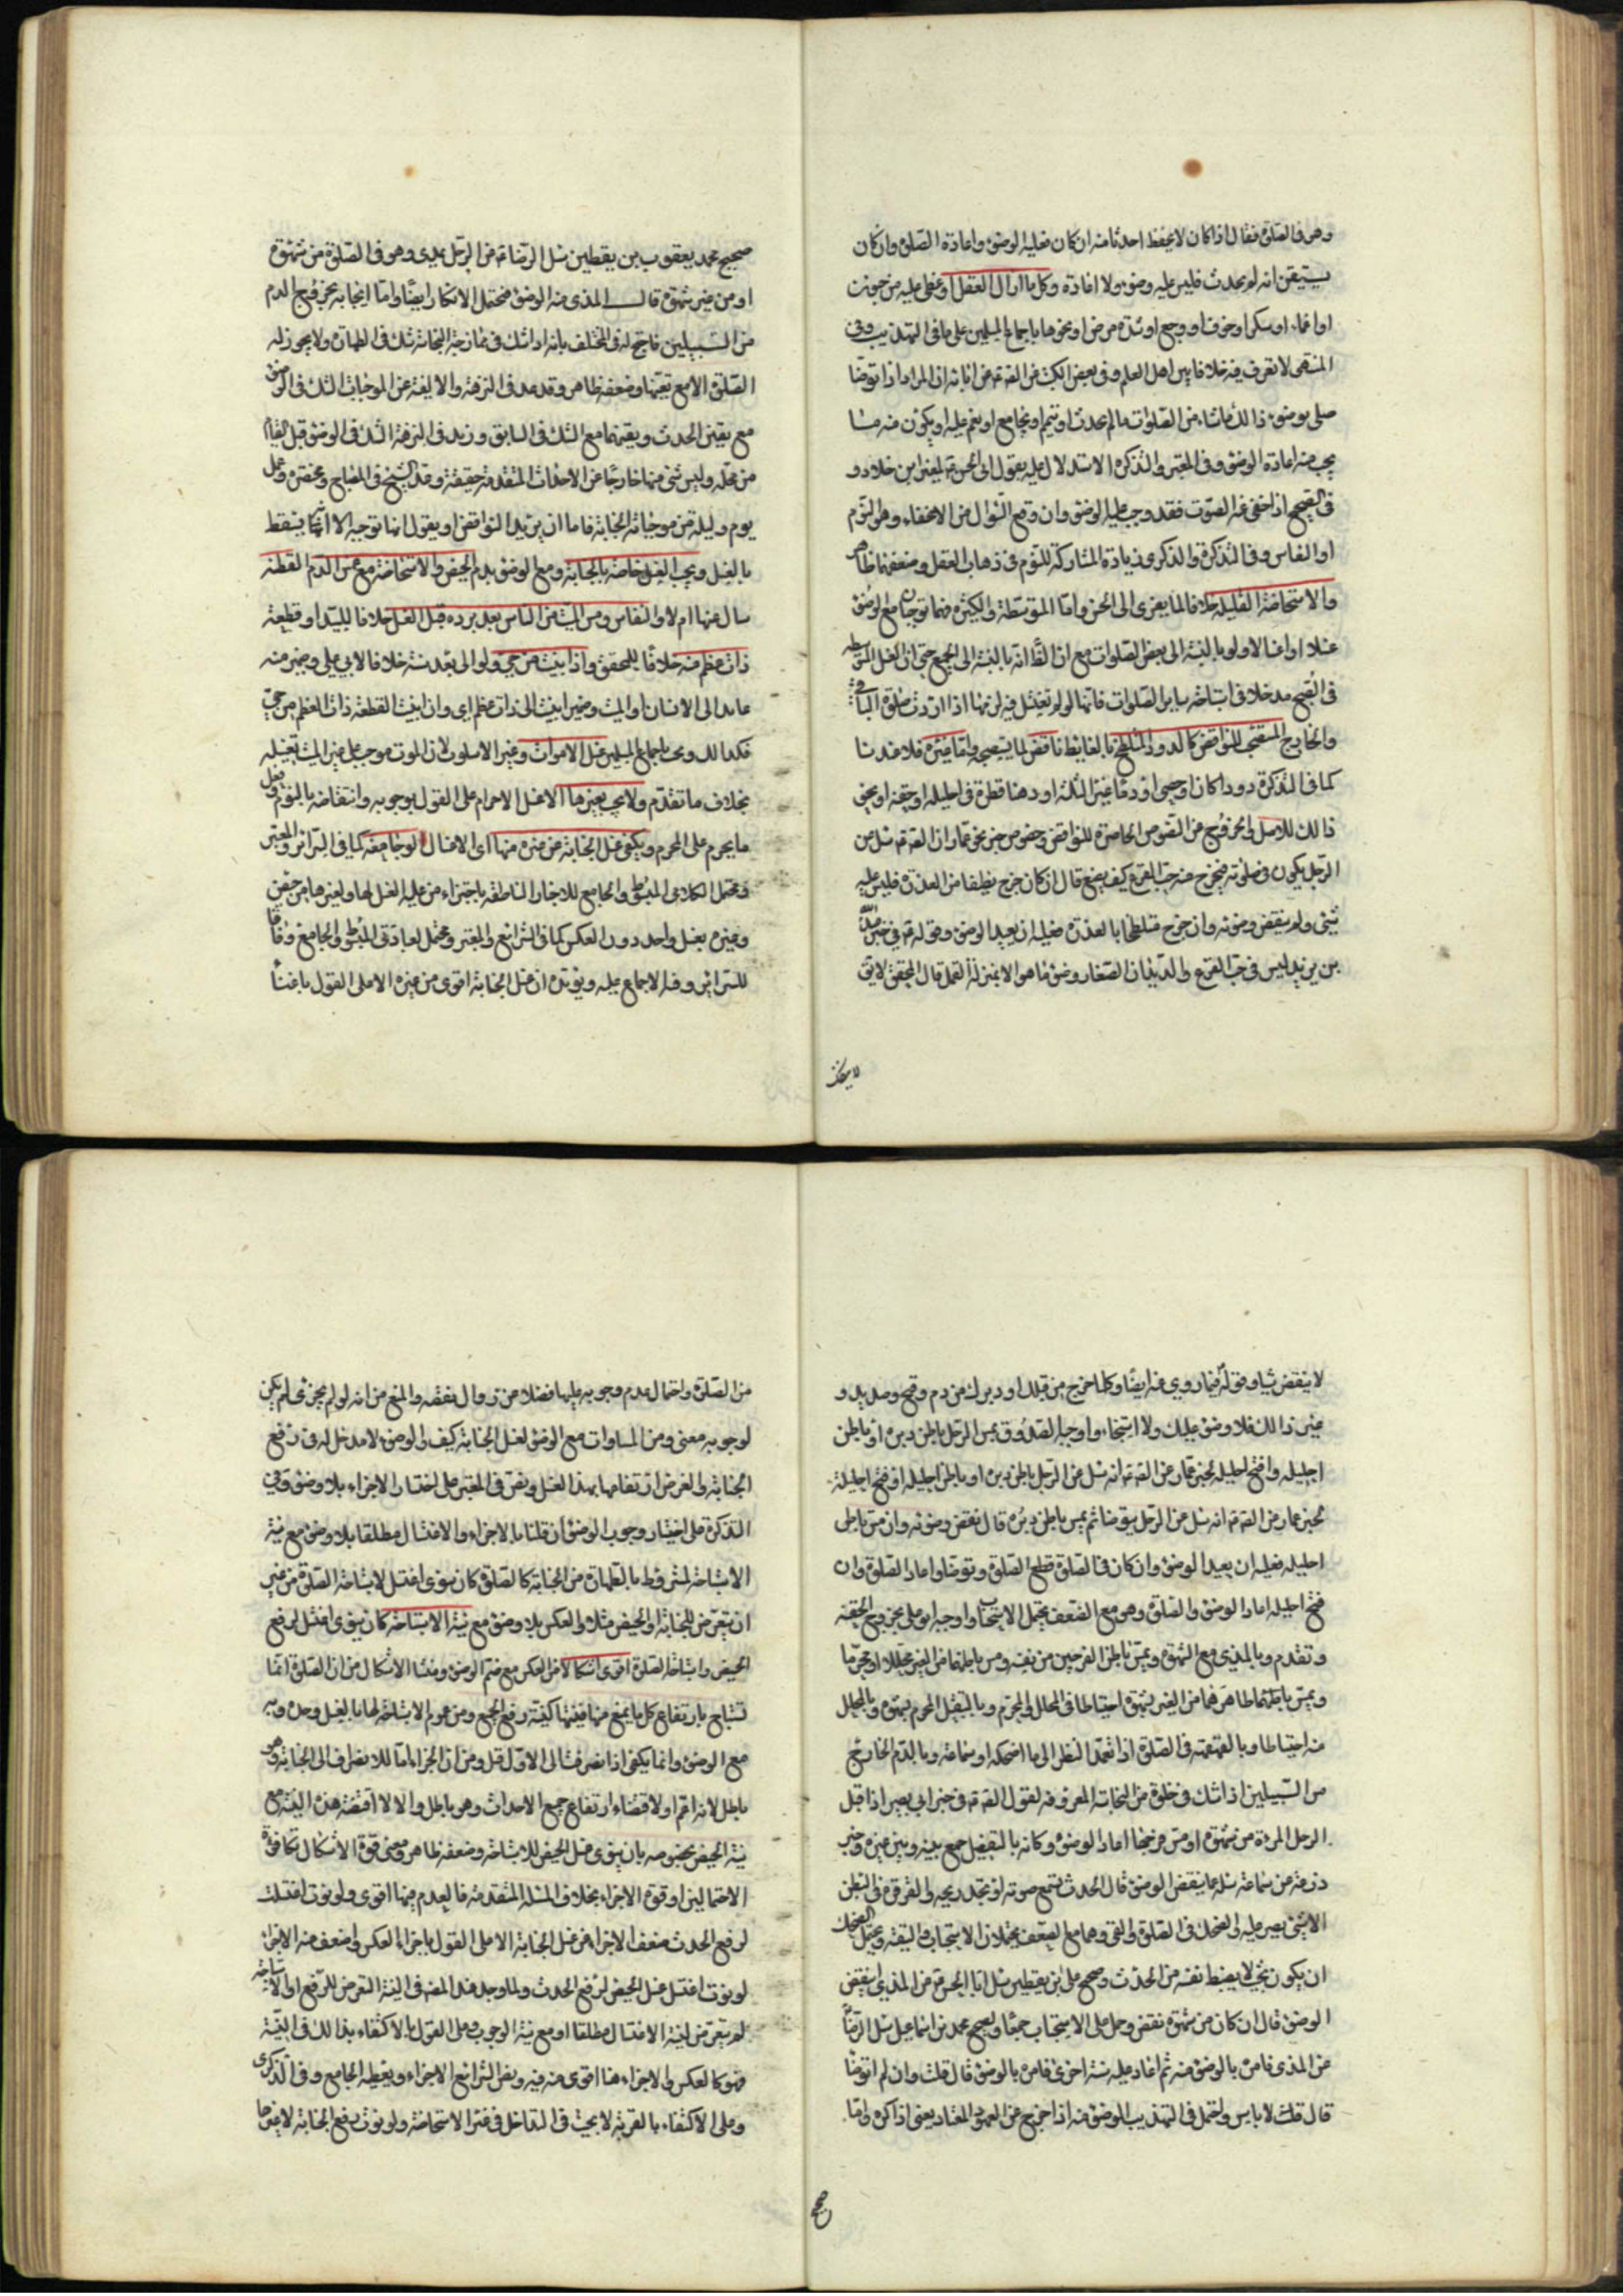 وهو فى الصلوة فقال اذا كان لا يحفظ احدثا منه ان كان فعليه الوضوء واعادة الصلوة وان كان
يستيقن انه لم يحدث فليس عليه وضوء ولا اعادة وكل ما ازال العقل او غطى عليه من جنون
او اغماء او سكر او خوف او وجع او شدة مرض او نحوها باجماع المسلمين على ما فى التهذيب وفى
المنتهى لا نعرف فيه خلافا بين اهل العلم وفى بعض الكتب عن الصم عن ابائه ان المراد اذا توضا
صلى بوضوئه ذالك ما شاء من الصلوات ما لم يحدث او ينم او يجامع او يغم عليه او يكون منه ما
يجب منه اعادة الوضوء وفى المعتبر والتذكرة الاستدلال عليه بقول ابى الحسن لمعمر بن خلاد و
فى الصحيح اذا خفى عنه الصوت فقد وجب عليه الوضوء وان وقع السؤال من الاغفاء وهو النوم
او النعاس وفى التذكرة والذكرى زيادة المشاركة للنوم فى ذهاب العقل وضعفهما ظاهر
والاستحاضة القليلة خلافا لما يعزى الى الحسن واما المتوسطة والكثيرة فهما توجبان مع الوضوء
غسلا او اغسالا ولو بالنسبة الى بعض الصلوات مع ان الظ انه بالنسبة الى الجميع حتى ان لغسل المتوسطه
فى الصبح مدخلا فى استباحة ساير الصلوات فانها لو لم تغتسل فيه لزمها اذا ارادت صلوة الباقية
والخارج المستصحب للنواقض كالدود المتلطخ بالغايط ناقض لما يستصحبه واما غيره فلا عندنا
كما فى التذكرة دودا كان او حصى او دما غير الثلثة او دهنا قطره فى احليله او حقنة او نحو
ذالك للاصل والخروج عن النصوص الحاصرة للنواقض وخصوص خبر نحو عمار ان الصم سئل عن
الرجل يكون فى صلوته فيخرج منه حب القرع كيف يصنع قال ان كان خرج نظيفا من العذرة فليس عليه
شىء ولم ينقض وضوئه وان خرج متلطخا بالعذرة فعليه ان يعيد الوضوء وقوله ع فى خبر عبدالله
بن يزيد ليس فى حب القرع والديدان الصغار وضوء ما هو الا بمنزلة القمل قال المحقق لا يق
لا ينقض
صحيح محمد يعقوب بن يقطين سئل الرضا ع عن الرجل يمذى وهو فى الصلوة من شهوة
او من غير شهوة قال المذى منه الوضوء فتحتمل الانكار ايضا واما ايجابه بخروج الدم
من السبيلين فاحتج له فى المختلف بانه اذا شك فى ممازجة النجاسة شك فى الطهارة ولا يجوز له
الصلوة الا مع تيقنها وضعفه ظاهر وقد عد فى النزهة والالفية من الموجبات الشك فى الوضوء
مع يقين الحدث ويقينهما مع الشك فى السابق وزيد فى النزهة الشك فى الوضوء قبل القيام
من محله وليس شئ منها خارجا عن الاحداث المتقدمة حقيقة وقد الشيخ فى المصباح ومختصره وعمل
يوم وليلة من موجباته الجنابة فاما ان يريد النواقض او يقول انها توجبه الا انها يسقط
بالغسل ويجب الغسل خاصة بالجنابة ومع الوضوء بدم الحيض والاستحاضة مع غمس الدم القطنة
سال عنها ام لا والنفاس ومس الميت من الناس بعد برده قبل الغسل خلافا للسيد او قطعة
ذات عظم منه خلافا للمحقق واذا ابينت من حى ولو الى بعد سنة خلافا لابى على وضمير منه
عايد الى الانسان او الميت وضمير ابينت الى ذات عظم اى وان ابينت القطعة ذات العظم من حى
فكذالك ويجب باجماع المسلمين غسل الاموات وغير الاسلوب لان الموت موجب على غير الميت تغسيله
بخلاف ما تقدم ولا يجب بغيرها الا غسل الاحرام على القول بوجوبه وانتقاضه بالنوم وفعل
ما يحرم على المحرم ويكفى غسل الجنابة عن غيره منها اى الاغسال لو جامعته كما فى السرائر والمعتبر
ومحتمل لكلامى المبسوط والجامع للاخبار الناطقة باجتزاء من عليه الغسل لها ولغيرها من حيض
وغيره بغسل واحد دون العكس كما فى الشرائع والمعتبر ومحتمل لعبارتى المبسوط والجامع وفاقا
للسرائر وفيه الاجماع عليه ويؤيده ان غسل الجنابة اقوى من غيره الا على القول باغنا
لا ينقض شيئا وقوله فيما روى عنه ايضا وكلما خرج من قبلك او دبرك من دم وقيح وصديد و
غير ذالك فلا وضوء عليك ولا استنجاء واوجبه الصدوق بمس الرجل باطن دبره او باطن
احليله وافتح احليله لخبر عمار عن الصم انه سئل عن الرجل باطن دبره او باطن احليله او فتح احليله
لخبر عمار عن الصم انه سئل عن الرجل يتوضا ثم يمس باطن دبره قال نقض وضوئه وان مس باطن
احليله فعليه ان يعيد الوضوء وان كان فى الصلوة قطع الصلوة وتوضا واعاد الصلوة وان
فتح احليله اعاد الوضوء والصلوة وهو مع الضعف يحتمل الاستحباب واوجبه ابو على بخروج الحقنة
وتقدم وبالمذى مع الشهوة وبمس باطن الفرجين من نفسه ومس باطنهما من الغير محللا او محرما
وبمس باطنهما ظاهرهما من الغير بشهوة احتياطا فى المحلل والمحرم وبالتقبيل المحرم بشهوة وبالمحلل
منه احتياطا وبالقهقهة فى الصلوة اذا تعمد النظر الى ما اضحكه او سماعه وبالدم الخارج
من السبيلين اذا شك فى خلوه من النجاسة المعروفة لقول الصم ع فى خبر ابى بصير اذا قبل
الرجل المرءة من شهوة او مس فرجها اعاد الوضوء وكانه بالتفصيل جمع بينه وبين غيره وخبر
زرعة عن سماعة سئله عما ينقض الوضوء قال الحدث تسمع صوته او تجد ريحه والقرقرة فى البطن
الا شئ يصبر عليه والضحك فى الصلوة والقئ وهما مع الضعف يحتملان الاستحباب والتقية ويحتمل الضحك
ان يكون بحيث لا يضبط نفسه من الحدث وصحيح على بن يقطين سئل ابا الحسن ع عن المذى اينقض
الوضوء قال ان كان من شهوة نقض وحمل على الاستحباب جمعا ولصحيح محمد بن اسماعيل سئل الرضا ع
عن المذى فامره بالوضوء منه ثم اعاد عليه سنة اخرى فامره بالوضوء قال قلت وان لم اتوضا
قال قلت لا باس واحتمل فى التهذيب الوضوء منه اذا خرج عن المعهود المعتاد يعنى اذا كثر واما
صحيح
من الصلوة واحتمال عدم وجوبه عليها فضلا عن زوال نقضه والمنع من انه لو لم يجزئ لم يكن
لوجوبه معنى ومن المساوات مع الوضوء لغسل الجنابة كيف والوضوء لا مدخل له فى رفع
الجنابة والغرض ارتفاعها بهذا الغسل ونص فى المعتبر على اختيار الاجزاء بلا وضوء وفى
التذكرة على اختيار وجوب الوضوء ان قلنا بالاجزاء والاغتسال مطلقا بلا وضوء مع نية
الاستباحة لمشروط بالطهارة من الجنابة كالصلوة كان ينوى اغتسل لاستباحة الصلوة من غير
ان يتعرض للجنابة او الحيض مثلا والعكس بلا وضوء مع نية الاستباحة كان ينوى اغتسل لرفع
الحيض واستباحة الصلوة اقوى اشكالا من العكس مع ضم الوضوء ومنشا الاشكال من ان الصلوة انما
تستباح بارتفاع كل ما يمنع منها فنيتها كنية رفع الجميع ومن عموم الاستباحة لها بالغسل وحده وبه
مع الوضوء وانما يكفى اذا انصرفت الى الاول قل ومن ان اجزاء اما للانصراف الى الجنابة وهو
باطل لانه اعم او لاقتضاء ارتفاع جميع الاحداث وهو باطل والا لاقتضته هذه النية مع
نية الحيض بخصوصه بان ينوى غسل الحيض للاستباحة وضعفه ظاهر ومعنى قوة الاشكال تكافؤ
الاحتمالين او قوة الاجزاء بخلاف المسئلة المتقدمة فالعدم فيها اقوى ولو نوت اغتسلت
لرفع الحدث ضعف الاجزاء عن غسل الجنابة الا على القول باجزاء العكس واضعف منه الاجزاء
لو نوت اغتسل غسل الحيض لرفع الحدث ولما وجد عند المصم فى النية التعرض للرفع او الاستباحة
لم يتعرض لنية الاغتسال مطلقا او مع نية الوجوب وعلى القول بالاكتفاء بذالك فى النية
فهو كالعكس والاجزاء هنا اقوى منه فيه وبغير الشرائع الاجزاء ويعطيه الجامع وفى الذكرى
وعلى الاكتفاء بالقربة لا بحث فى التداخل فى غير الاستحاضة ولو نوت رفع الجنابة لا غيرها